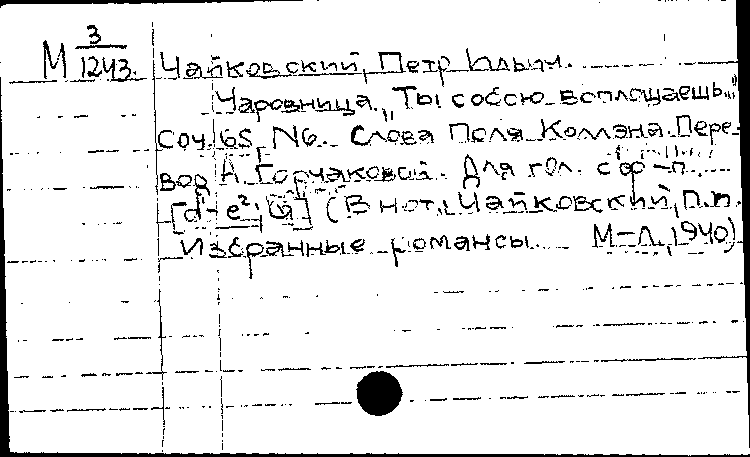 М 3/1243. Чайковский, Петр Ильич.
Чаровница. „Ты собою воплощаешь..."
Соч. 65, №6. Слова Поля Коллэна. Пере-
вод А. Горчаковой. Для гол. с ф-п.
[d¹-e²; ] (В нот.: Чайковский, П.И.
Избранные романсы. М-Л., 1940)